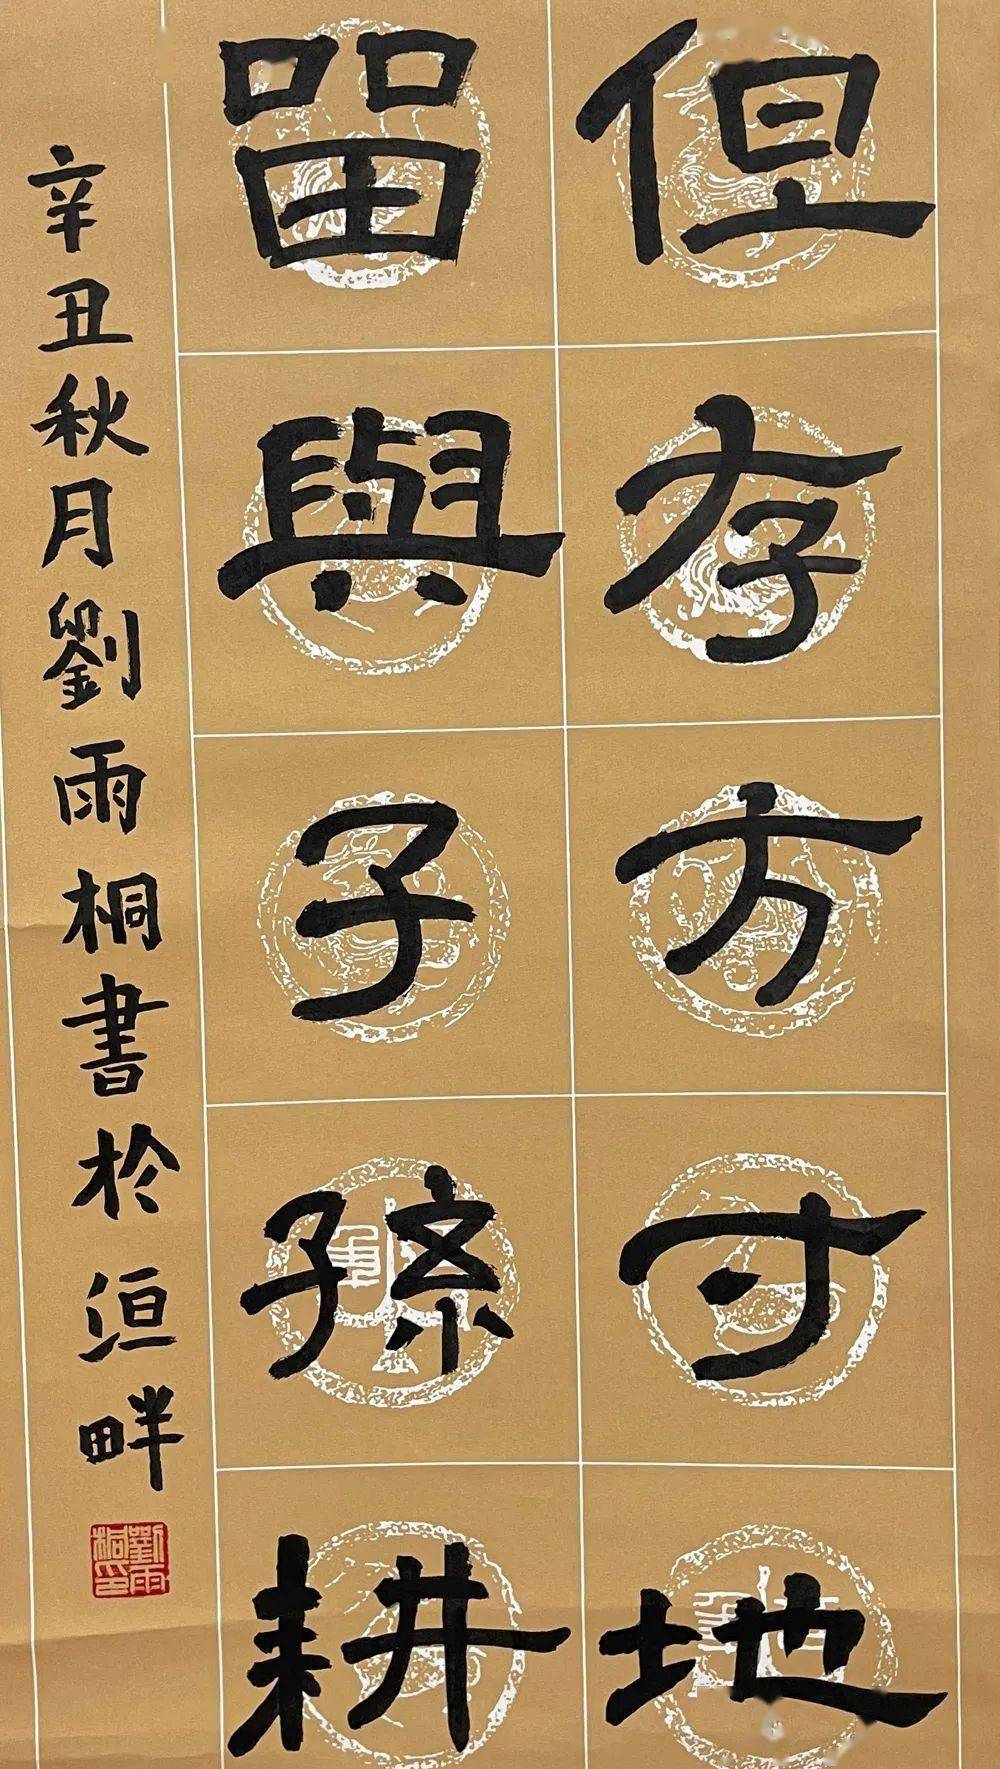 但存方寸地
畱與子孫耕
辛丑秋月劉雨桐書於洹畔
劉雨桐印